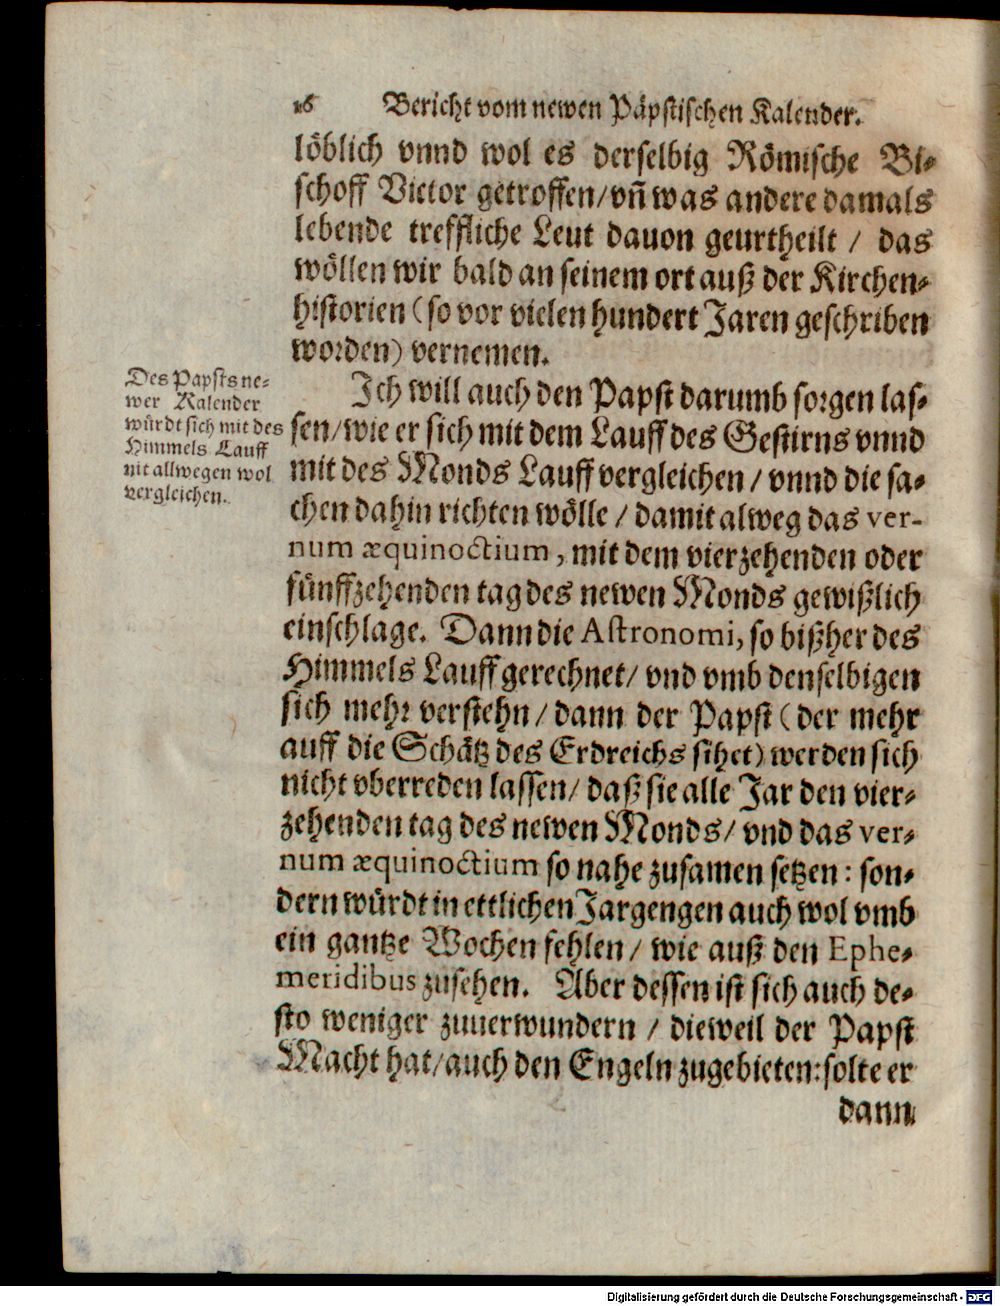 16 Bericht vom newen Päpstischen Kalender.
löblich vnnd wol es derselbig Römische Bi-
schoff Victor getroffen/ vñ was andere damals
lebende treffliche Leut dauon geurtheilt / das
wöllen wir bald an seinem ort auß der Kirchen-
historien (so vor vielen hundert Jaren geschriben
worden) vernemen.
Des Papsts ne-
wer Kalender
würdt sich mit des
Himmels Lauff
nit allwegen wol
vergleichen.
Ich will auch den Papst darumb sorgen las-
sen/ wie er sich mit dem Lauff des Gestirns vnnd
mit des Monds Lauff vergleichen / vnnd die sa-
chen dahin richten wölle / damit alweg das ver-
num æquinoctium, mit dem vierzehenden oder
fünffzehenden tag des newen Monds gewißlich
einschlage. Dann die Astronomi, so bißher des
Himmels Lauff gerechnet/ vnd vmb denselbigen
sich mehr verstehn / dann der Papst (der mehr
auff die Schätz des Erdreichs sihet) werden sich
nicht vberreden lassen/ daß sie alle Jar den vier-
zehenden tag des newen Monds/ vnd das ver-
num æquinoctium so nahe zusamen setzen: son-
dern würdt in ettlichen Jargengen auch wol vmb
ein gantze Wochen fehlen / wie auß den Ephe-
meridibus zusehen. Aber dessen ist sich auch de-
sto weniger zuuerwundern / dieweil der Papst
Macht hat/ auch den Engeln zugebieten: solte er
dann
Digitalisierung gefördert durch die Deutsche Forschungsgemeinschaft - DFG